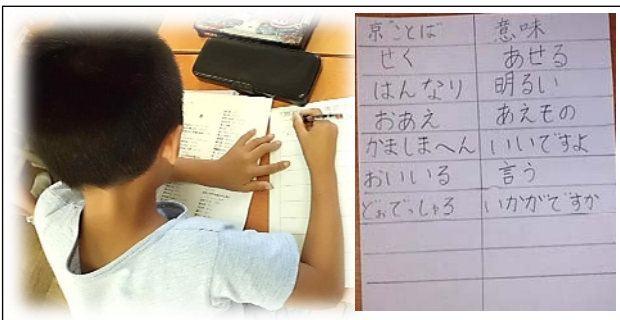 京ことば 意味
せく あせる
はんなり 明るい
おあえ あえもの
かましまへん いいですよ
おいいる 言う
どぉでっしゃろ いかがですか